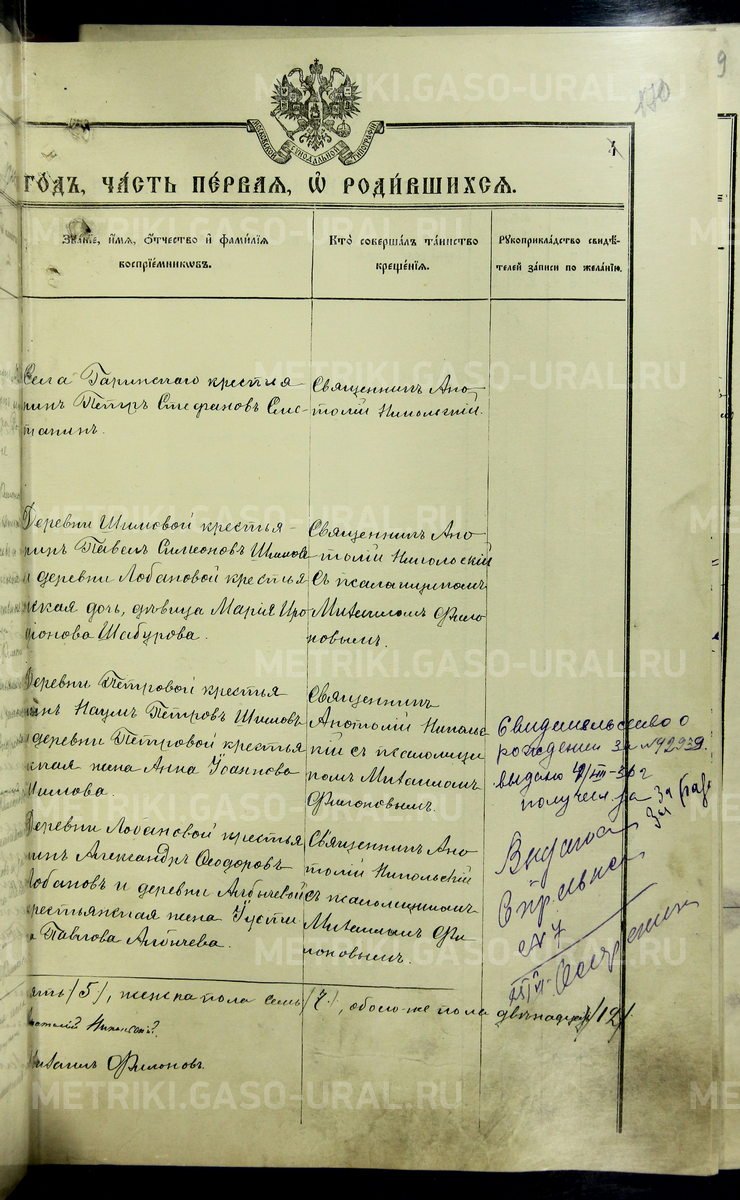 METRIKI.GASO-URAL.RU
9
170
МОСКОВСКОЙ СѴНОДАЛЬНОЙ ТИПОГРАФІИ
4
ГО́ДЪ, ЧА́СТЬ ПЕ́РВАЯ, Ѽ РОДИ́ВШИХСЯ.
Зва́ніе, и́мя, о́тчество и фами́лія
воспріе́мниковъ.
Кто̀ соверша́лъ та́инство
креще́нія.
Рꙋкоприкла́дство свидѣ́-
телей за́писи по жела́нію.
METRIKI.GASO-URAL.RU
Села Гаринскаго крестья
нинъ Петръ Стефановъ
Священникъ Ана
толій Никольскій.
METRIKI.GASO-URAL.RU
Деревни Шимовой крестья-
нинъ Павелъ Симеоновъ Шимовъ
и деревни Лобановой крестья
нская дочь, дѣвица Марія Иро
діонова Шабурова.
Священникъ Ана
толій Никольскій
Съ псаломщикомъ
Михаиломъ Фило
новымъ.
METRIKI.GASO-URAL.RU
Деревни Петровой крестья
нинъ Наумъ Петровъ Шимовъ
и деревни Петровой крестья
нская жена Анна Іоаннова
Шимова.
Священникъ
Анатолій Николь
скій съ псаломщи
комъ Михаиломъ
Филоновымъ.
Свидетельство о
рождении за №92939.
выдано
METRIKI.GASO-URAL.RU
Деревни Лобановой крестья
нинъ Александръ Ѳеодоровъ
Лобановъ и деревни Албычевой
крестьянская жена Іусти
на Павлова Албычева.
Священникъ Ана
толій Никольскій
съ псаломщикомъ
Михаиломъ Фи
лоновымъ.
Выдана
Справка
№7
METRIKI.GASO-URAL.RU
пять /5/, женска пола семь /7/, обоего-же пола двѣнадцать /12/.
Михаилъ Филоновъ.
METRIKI.GASO-URAL.RU